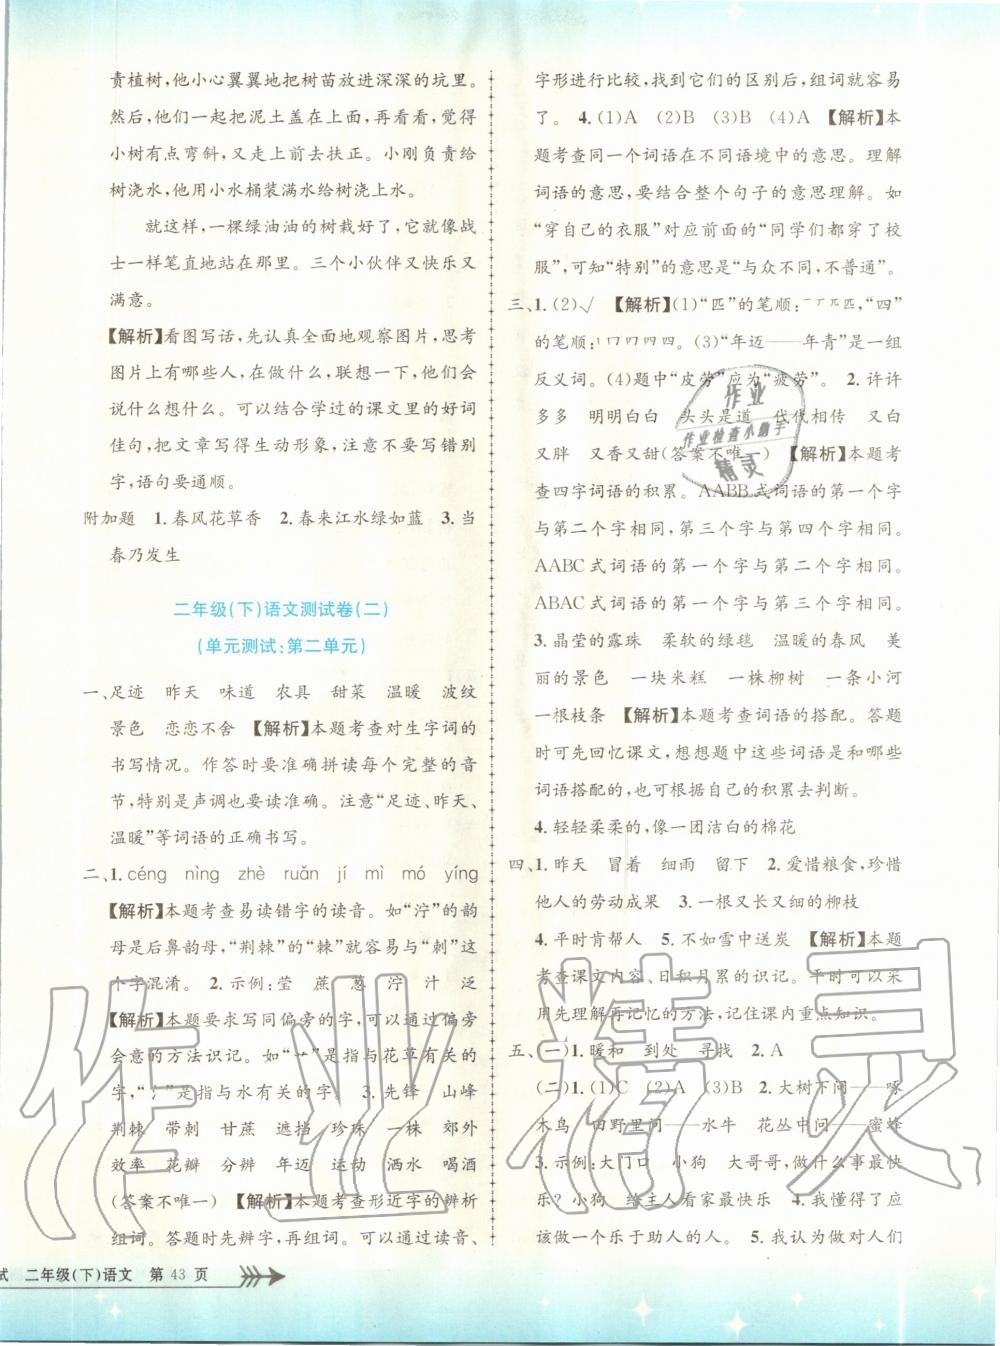 责植树,他小心翼翼地把树苗放进深深的坑里。
然后,他们一起把泥土盖在上面,再看看,觉得
小树有点弯斜,又去扶正。小刚负责给
树浇水,他用小水桶装满水给树浇上水。
就这样,一棵绿油油的树栽好了,它就像战
士一样笔直地站在那里。三个小伙伴又快乐又
满意。
【解析】看图写话,先认真全面地观察图片,思考
图片上有哪些人,在做什么,联想一下,他们会
说什么想什么。可以结合学过的课文里的好词
佳句,把文章写得生动形象,注意不要写错别
字,语句要通顺。
附加题 1.春风花草香 2.春来江水绿如蓝 3.当
春乃发生
二年级(下)语文测试卷(二)
(单元测试:第二单元)
一、足迹 昨天 味道 农具 甜菜 温暖 波纹
景色 恋恋不舍 【解析】本题考查对生字词的
书写情况。作答时要准确拼读每个完整的音
节,特别是声调也要读准确。注意“足迹、昨天、
温暖”等词语的正确书写。
二、1.céng nìng zhè ruǎn jí mì mó yíng
【解析】本题考查易读错字的读音。如“泞”的韵
母是后鼻韵母,“荆棘”的“棘”就容易与“刺”这
个字混淆。 2.示例:莹 蔗 葱 泞 汁 泛
【解析】本题要求写同偏旁的字,可以通过偏旁
会意的方法识记。如“艹”是指与花草有关的
字,“氵”是指与水有关的字。 3.先锋 山峰
荆棘 带刺 甘蔗 遮挡 珍珠 一株 郊外
效率 花瓣 分辨 年迈 运动 洒水 喝酒
(答案不唯一) 【解析】本题考查形近字的辨析
组词。答题时先辨字,再组词。可以通过读音、
试 二年级(下)语文 第 43 页
字形进行比较,找到它们的区别后,组词就容易
了。 4.(1)A (2)B (3)B (4)A 【解析】本
题考查同一个词语在不同语境中的意思。理解
词语的意思,要结合整个句子的意思理解。如
“穿自己的衣服”对应前面的“同学们都穿了校
服”,可知“特别”的意思是“与众不同,不普通”。
三、1.(2)√ 【解析】(1)“匹”的笔顺:一丆兀匹,“四”
的笔顺:丨冂冂四四。(3)“年迈——年青”是一组
反义词。(4)题中“皮劳”应为“疲劳”。 2.许许
多多 明明白白 头头是道 代代相传 又白
又胖 又香又甜(答案不唯一) 【解析】本题考
查四字词语的积累。AABB式词语的第一个字
与第二个字相同,第三个字与第四个字相同。
AABC式词语的第一个字与第二个字相同。
ABAC式词语的第一个字与第三个字相同。
3.晶莹的露珠 柔软的绿毯 温暖的春风 美
丽的景色 一块米糕 一株柳树 一条小河
一根枝条 【解析】本题考查词语的搭配。答题
时可先回忆课文,想想题中这些词语是和哪些
词语搭配的,也可根据自己的积累去判断。
4.轻轻柔柔的,像一团洁白的棉花
四、1.昨天 冒着 细雨 留下 2.爱惜粮食,珍惜
他人的劳动成果 3.一根又长又细的柳枝
4.平时肯帮人 5.不如雪中送炭 【解析】本题
考查课文内容、日积月累的识记。平时可以采
用先理解再记忆的方法,记住课内重点知识。
五、(一)1.暖和 到处 寻找 2.A
(二)1.(1)C (2)A (3)B 2.大树下问——啄
木鸟 田野里问——水牛 花丛中问——蜜蜂
3.示例:大门口 小狗 大哥哥,做什么事最快
乐?小狗 给主人看家最快乐 4.我懂得了应
该做一个乐于助人的人。 5.我认为做对人们
作业
作业检查小助手
精灵
作业精灵